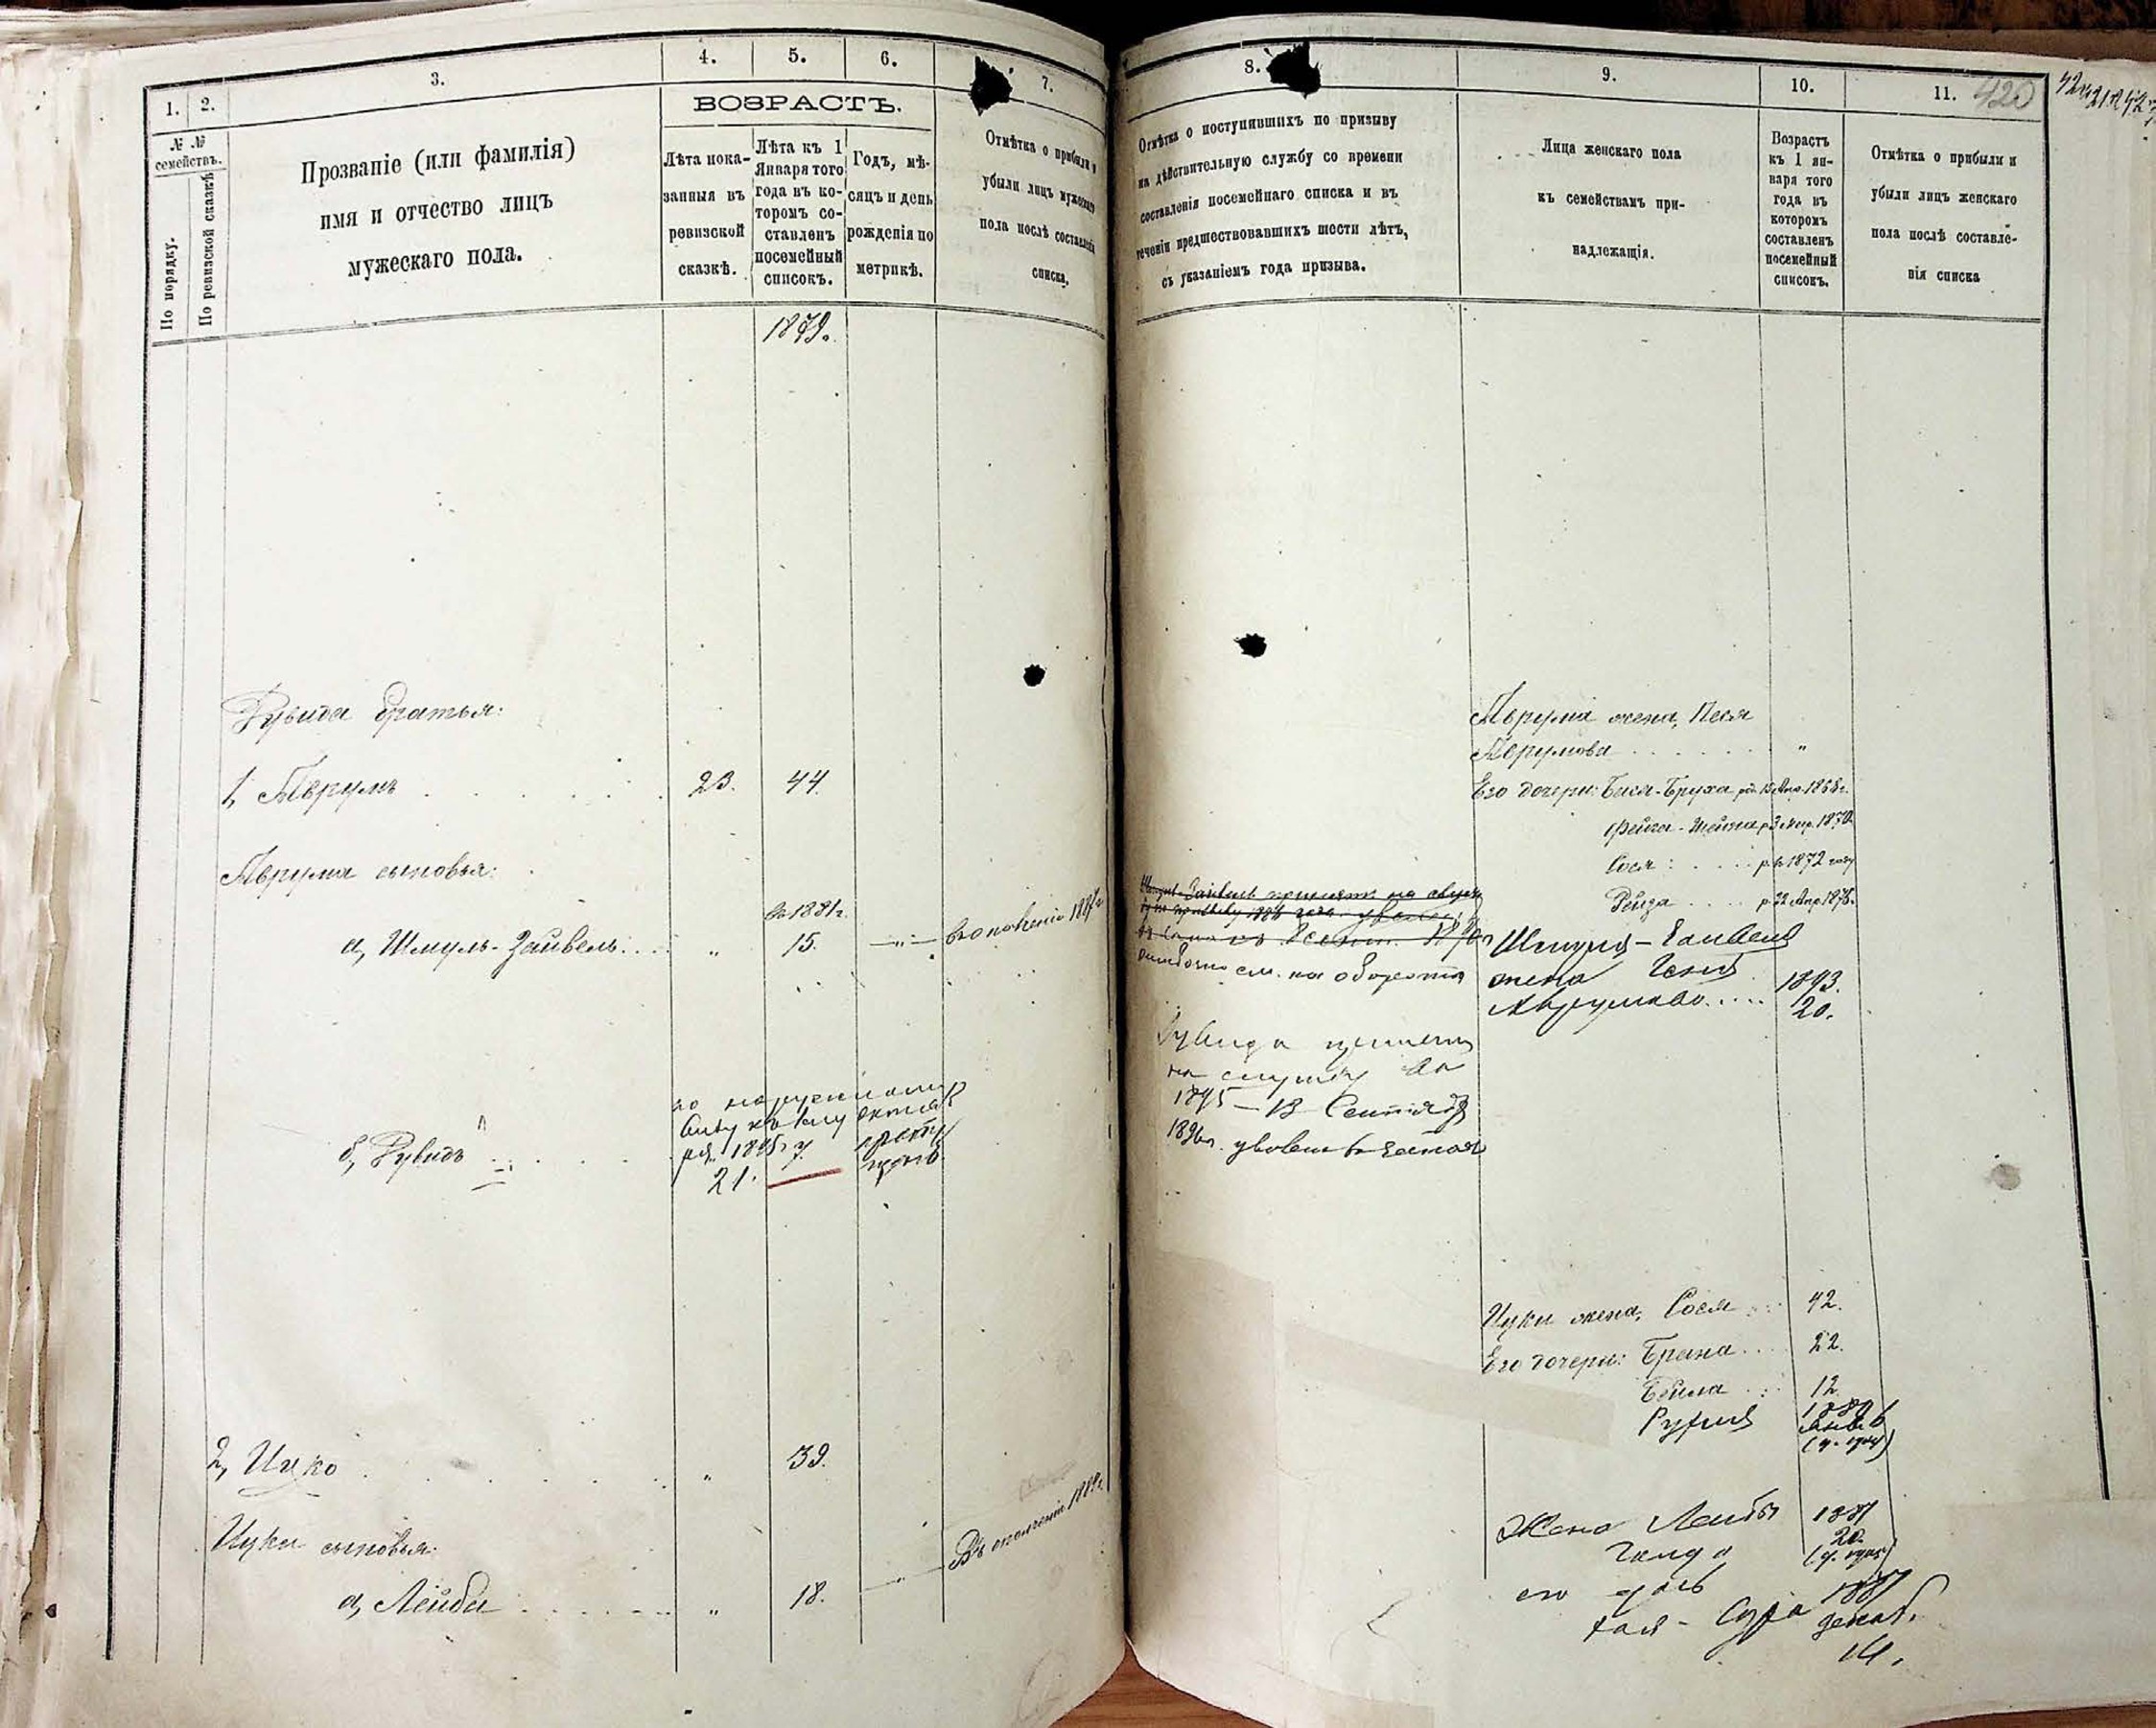 1.
2.
3.
4.
5.
6.
7.
№ №
семействъ.
По порядку.
По ревизской сказкѣ
Прозваніе (или фамилія)
имя и отчество лицъ
мужескаго пола.
ВОЗРАСТЪ.
Лѣта пока-
занныя въ
ревизской
сказкѣ.
Лѣта къ 1
Января того
года въ ко-
торомъ со-
ставленъ
посемейный
списокъ.
Годъ, мѣ-
сяцъ и день
рожденія по
метрикѣ.
Отмѣтка о прибыли и
убыли лицъ мужескаго
пола послѣ составленія
списка.
1879.
Рувида братья:
1, Аврумъ 23. 44.
Аврума сыновья:
въ 1881г.
а, Шмуль-Зайвель " 15. —"— въ ополченіе
по наружному
виду къ 1му октяб
1895г.
б, Рувидъ 21.
2, Ицко " 39.
Ицки сыновья:
а, Лейба " 18. Въ ополченіе
8.
9.
10.
11.
420
Отмѣтка о поступившихъ по призыву
на дѣйствительную службу со времени
составленія посемейнаго списка и въ
теченіи предшествовавшихъ шести лѣтъ,
съ указаніемъ года призыва.
Лица женскаго пола
къ семействамъ при-
надлежащія.
Возрастъ
къ 1 ян-
варя того
года въ
которомъ
составленъ
посемейный
списокъ.
Отмѣтка о прибыли и
убыли лицъ женскаго
пола послѣ составле-
нія списка
Аврума жена, Песя
Аврумова "
Его дочери: Бася-Бруха
Фейга-Шейна
Сося: р. въ 1872 году
Рейза р. 22 Апр. 1878г.
Шмуль-Зайвель принятъ на службу
ошибочно см. на оборотѣ
Шмуля-Зайвеля
жена Геня 1893.
Аврумова 20.
Рувидъ принятъ
на службу въ
1895 — 13 Сентября
1896г. уволенъ въ запасъ
Ицки жена, Сося 42.
Его дочери: Брана 22.
Бейла 12.
Рухля
Жена Лейбы 1881
20.
его дочь
Хая-Сура 1887
декаб.
14.